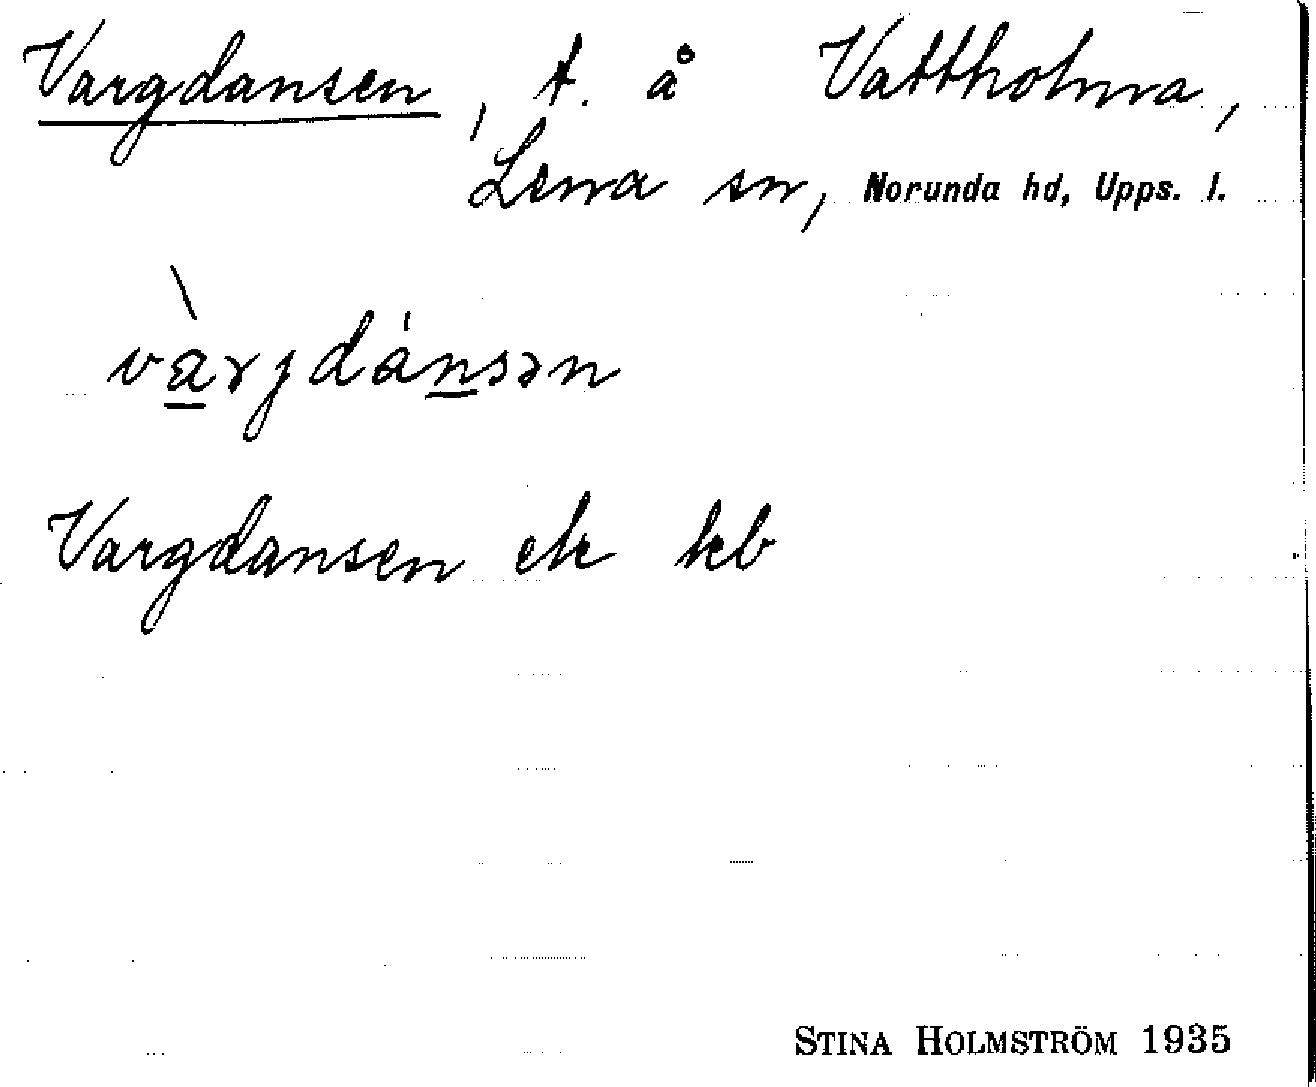 Vargdansen, t. å Vattholma,
Lena sn, Norunda hd, Upps. l.
vàrgdánsən
Vargdansen ek kb
STINA HOLMSTRÖM 1935